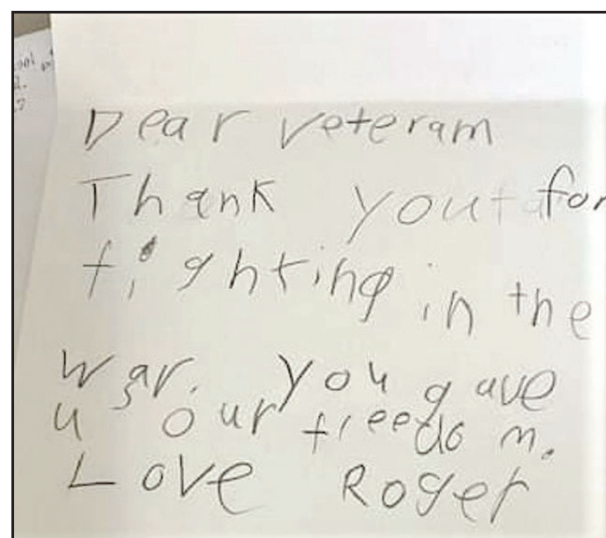 Dear Veteram
Thank you for
fighting in the
war. You gave
us our freedom.
Love Roger